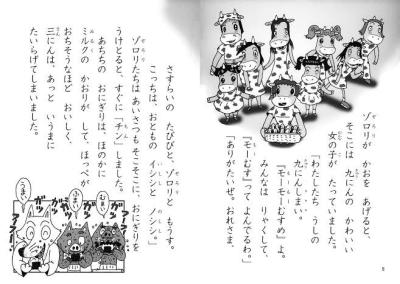 ゾロリが かおを あげると、
そこには 九にんの かわいい
女の子が たっていました。
「わたしたち うしの
九にんしまい。
『モーモーむすめ』よ。
みんなは りゃくして、
『モーむす』って よんでるわ。」
「ありがたいぜ。おれさま、
さすらいの たびびと、ゾロリと もうす。
こっちは、おともの イシシと ノシシ。」
ゾロリたちは あいさつも そこそこに、おにぎりを
うけとると、すぐに 「チン」しました。
あちちの おにぎりは、ほのかに
ミルクの かおりが して、ほっぺが
おちそうなほど おいしく、
三にんは、あっと いうまに
たいらげてしまいました。
うまい
ガツ
ガツ